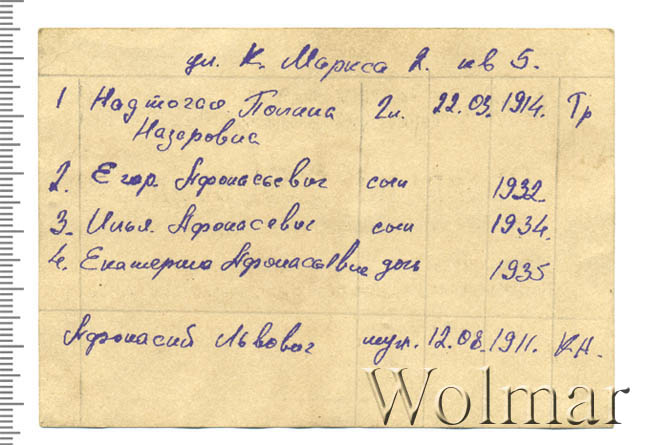 ул. К. Маркса 2. кв 5.
1 Надтогая Полина Гл. 22.03. 1914. Тр
Назаровна
2. Егор Афонасьевич сын 1932.
3. Илья Афонасевич сын 1934.
4. Екатерина Афонасьевна дочь 1935
Афонасий Львович муж. 12.08. 1911. КА.
Wolmar